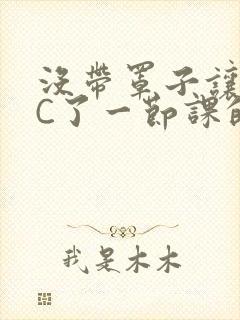 没带罩子讓
C了一節課
我是木木